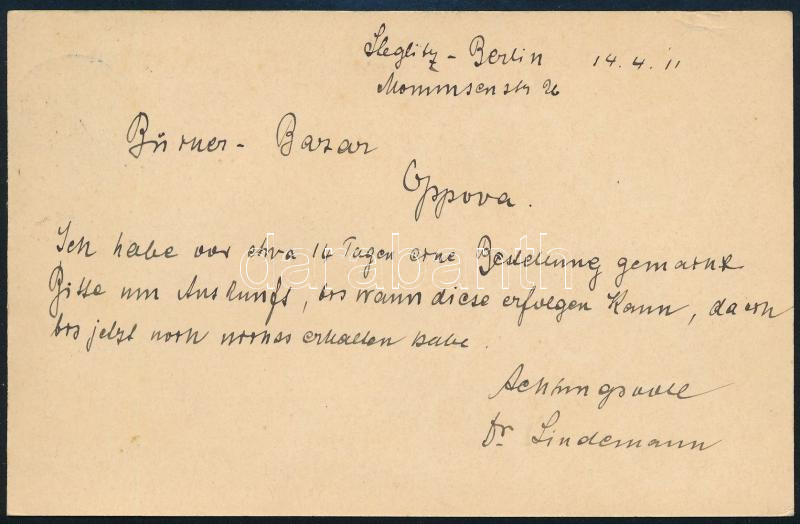 Steglitz - Berlin 14.4.11
Mommsenstr 26
Bürner - Bazar
Oppova.
Ich habe vor etwa 14 Tagen eine Bestellung gemacht
Bitte um Auskunft, bis wann diese erfolgen kann, da ich
bis jetzt noch nichts erhalten habe.
Achtungsvoll
Dr. Lindemann
darabanth